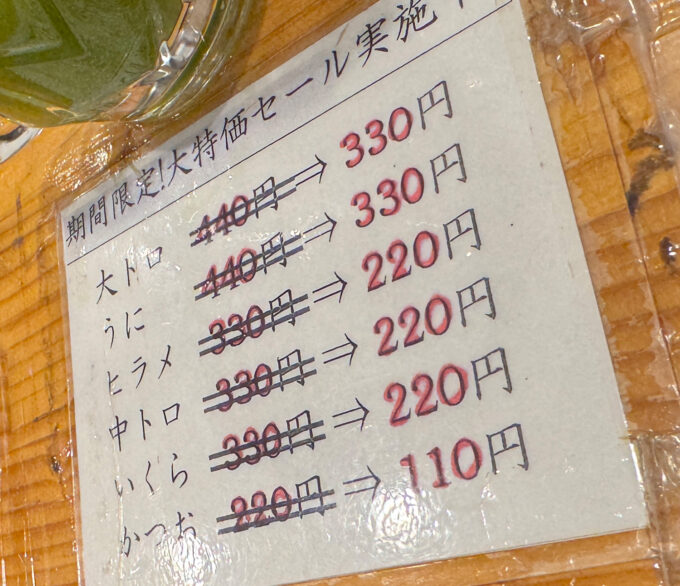 期間限定!大特価セール実施
大トロ 440円 ⇒ 330円
うに 440円 ⇒ 330円
ヒラメ 330円 ⇒ 220円
中トロ 330円 ⇒ 220円
いくら 330円 ⇒ 220円
かつお 220円 ⇒ 110円